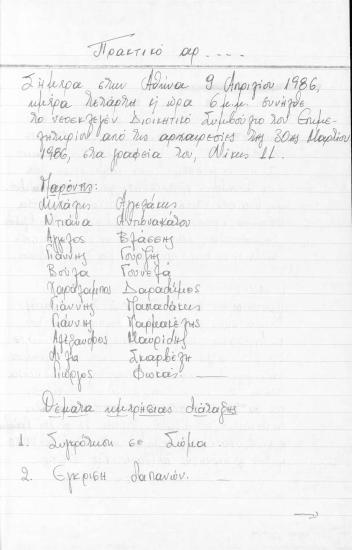 Πρακτικό αρ....
Σήμερα στην Αθήνα 9 Απριλίου 1986,
ημέρα Τετάρτη ή ώρα 6 μ.μ. συνήλθε
το νεοεκλεγέν Διοικητικό Συμβούλιο του Επιμε-
λητηρίου από τις αρχαιρεσίες της 30ης Μαρτίου
1986, στα γραφεία του, Νίκης 11.
Παρόντες:
Μιχάλης Αλεξάκης
Ντιάνα Αντωνακάτου
Άγγελος Βλάσσης
Γιάννης Γουρζής
Βούλα Γουνελά
Χαράλαμπος Δαραδήμος
Γιάννης Παπαδάκης
Γιάννης Παρμακέλης
Αλέξανδρος Μαυρίδης
Σκαρβέλη
Γιώργος Φωκάς
Θέματα ημερήσιας διάταξης
1. Συγκρότηση σε Σώμα.
2. Έγκριση δαπανών.